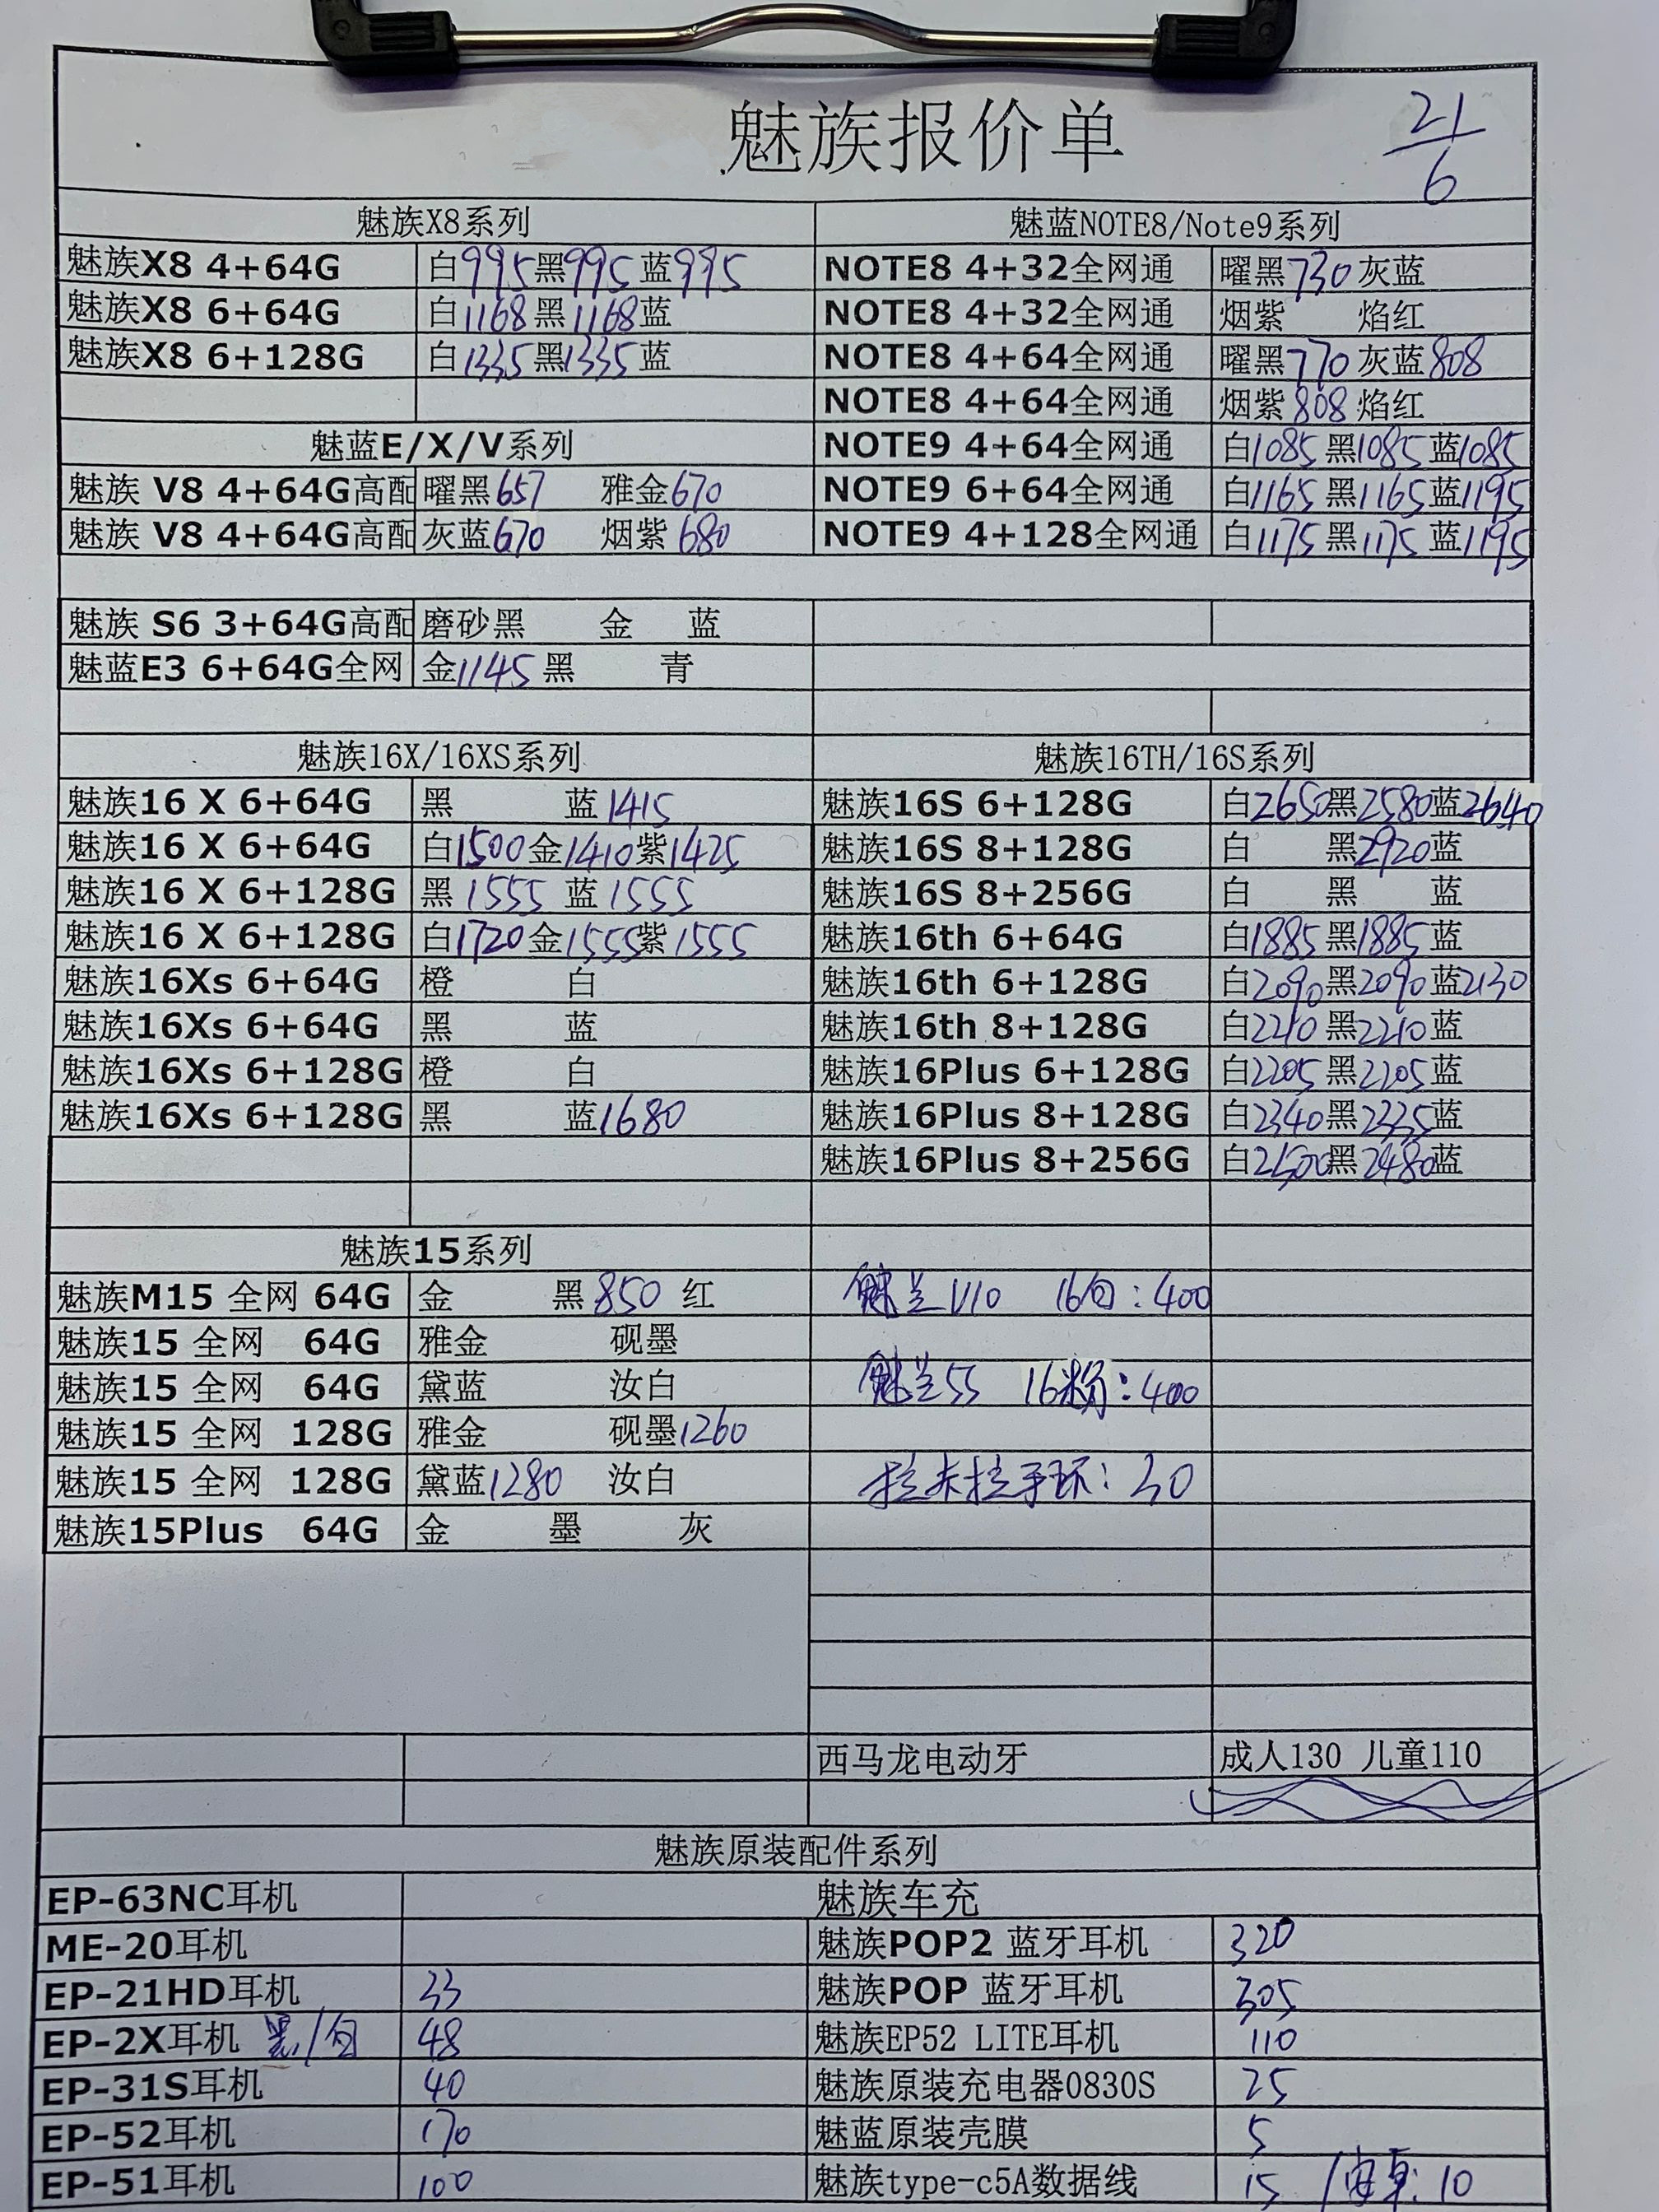 魅族报价单
21/6
魅族X8系列
魅族X8 4+64G 白995 黑995 蓝995
魅族X8 6+64G 白1168 黑1168 蓝
魅族X8 6+128G 白1335 黑1335 蓝
魅蓝E/X/V系列
魅族 V8 4+64G高配 曜黑657 雅金670
魅族 V8 4+64G高配 灰蓝670 烟紫680
魅族 S6 3+64G高配 磨砂黑 金 蓝
魅蓝E3 6+64G全网 金1145 黑 青
魅蓝NOTE8/Note9系列
NOTE8 4+32全网通 曜黑730 灰蓝
NOTE8 4+32全网通 烟紫 焰红
NOTE8 4+64全网通 曜黑770 灰蓝808
NOTE8 4+64全网通 烟紫808 焰红
NOTE9 4+64全网通 白1085 黑1085 蓝1085
NOTE9 6+64全网通 白1165 黑1165 蓝1195
NOTE9 4+128全网通 白1175 黑1175 蓝1195
魅族16X/16XS系列
魅族16 X 6+64G 黑 蓝1415
魅族16 X 6+64G 白1500 金1410 紫1425
魅族16 X 6+128G 黑1555 蓝1555
魅族16 X 6+128G 白1720 金1555 紫1555
魅族16Xs 6+64G 橙 白
魅族16Xs 6+64G 黑 蓝
魅族16Xs 6+128G 橙 白
魅族16Xs 6+128G 黑 蓝1680
魅族16TH/16S系列
魅族16S 6+128G 白2650 黑2580 蓝2640
魅族16S 8+128G 白 黑2920 蓝
魅族16S 8+256G 白 黑 蓝
魅族16th 6+64G 白1885 黑1885 蓝
魅族16th 6+128G 白2090 黑2090 蓝2130
魅族16th 8+128G 白2210 黑2210 蓝
魅族16Plus 6+128G 白2205 黑2205 蓝
魅族16Plus 8+128G 白2340 黑2335 蓝
魅族16Plus 8+256G 白2500 黑2480 蓝
魅族15系列
魅族M15 全网 64G 金 黑850 红
魅族15 全网 64G 雅金 砚墨
魅族15 全网 64G 黛蓝 汝白
魅族15 全网 128G 雅金 砚墨1260
魅族15 全网 128G 黛蓝1280 汝白
魅族15Plus 64G 金 墨 灰
魅兰U10 16白:400
魅兰5S 16粉:400
拉卡拉手环:30
西马龙电动牙 成人130 儿童110
魅族原装配件系列
EP-63NC耳机 魅族车充
ME-20耳机 魅族POP2 蓝牙耳机 320
EP-21HD耳机 33 魅族POP 蓝牙耳机 305
EP-2X耳机 黑/白 48 魅族EP52 LITE耳机 110
EP-31S耳机 40 魅族原装充电器0830S 25
EP-52耳机 170 魅蓝原装壳膜 5
EP-51耳机 100 魅族type-c5A数据线 15 /安卓:10